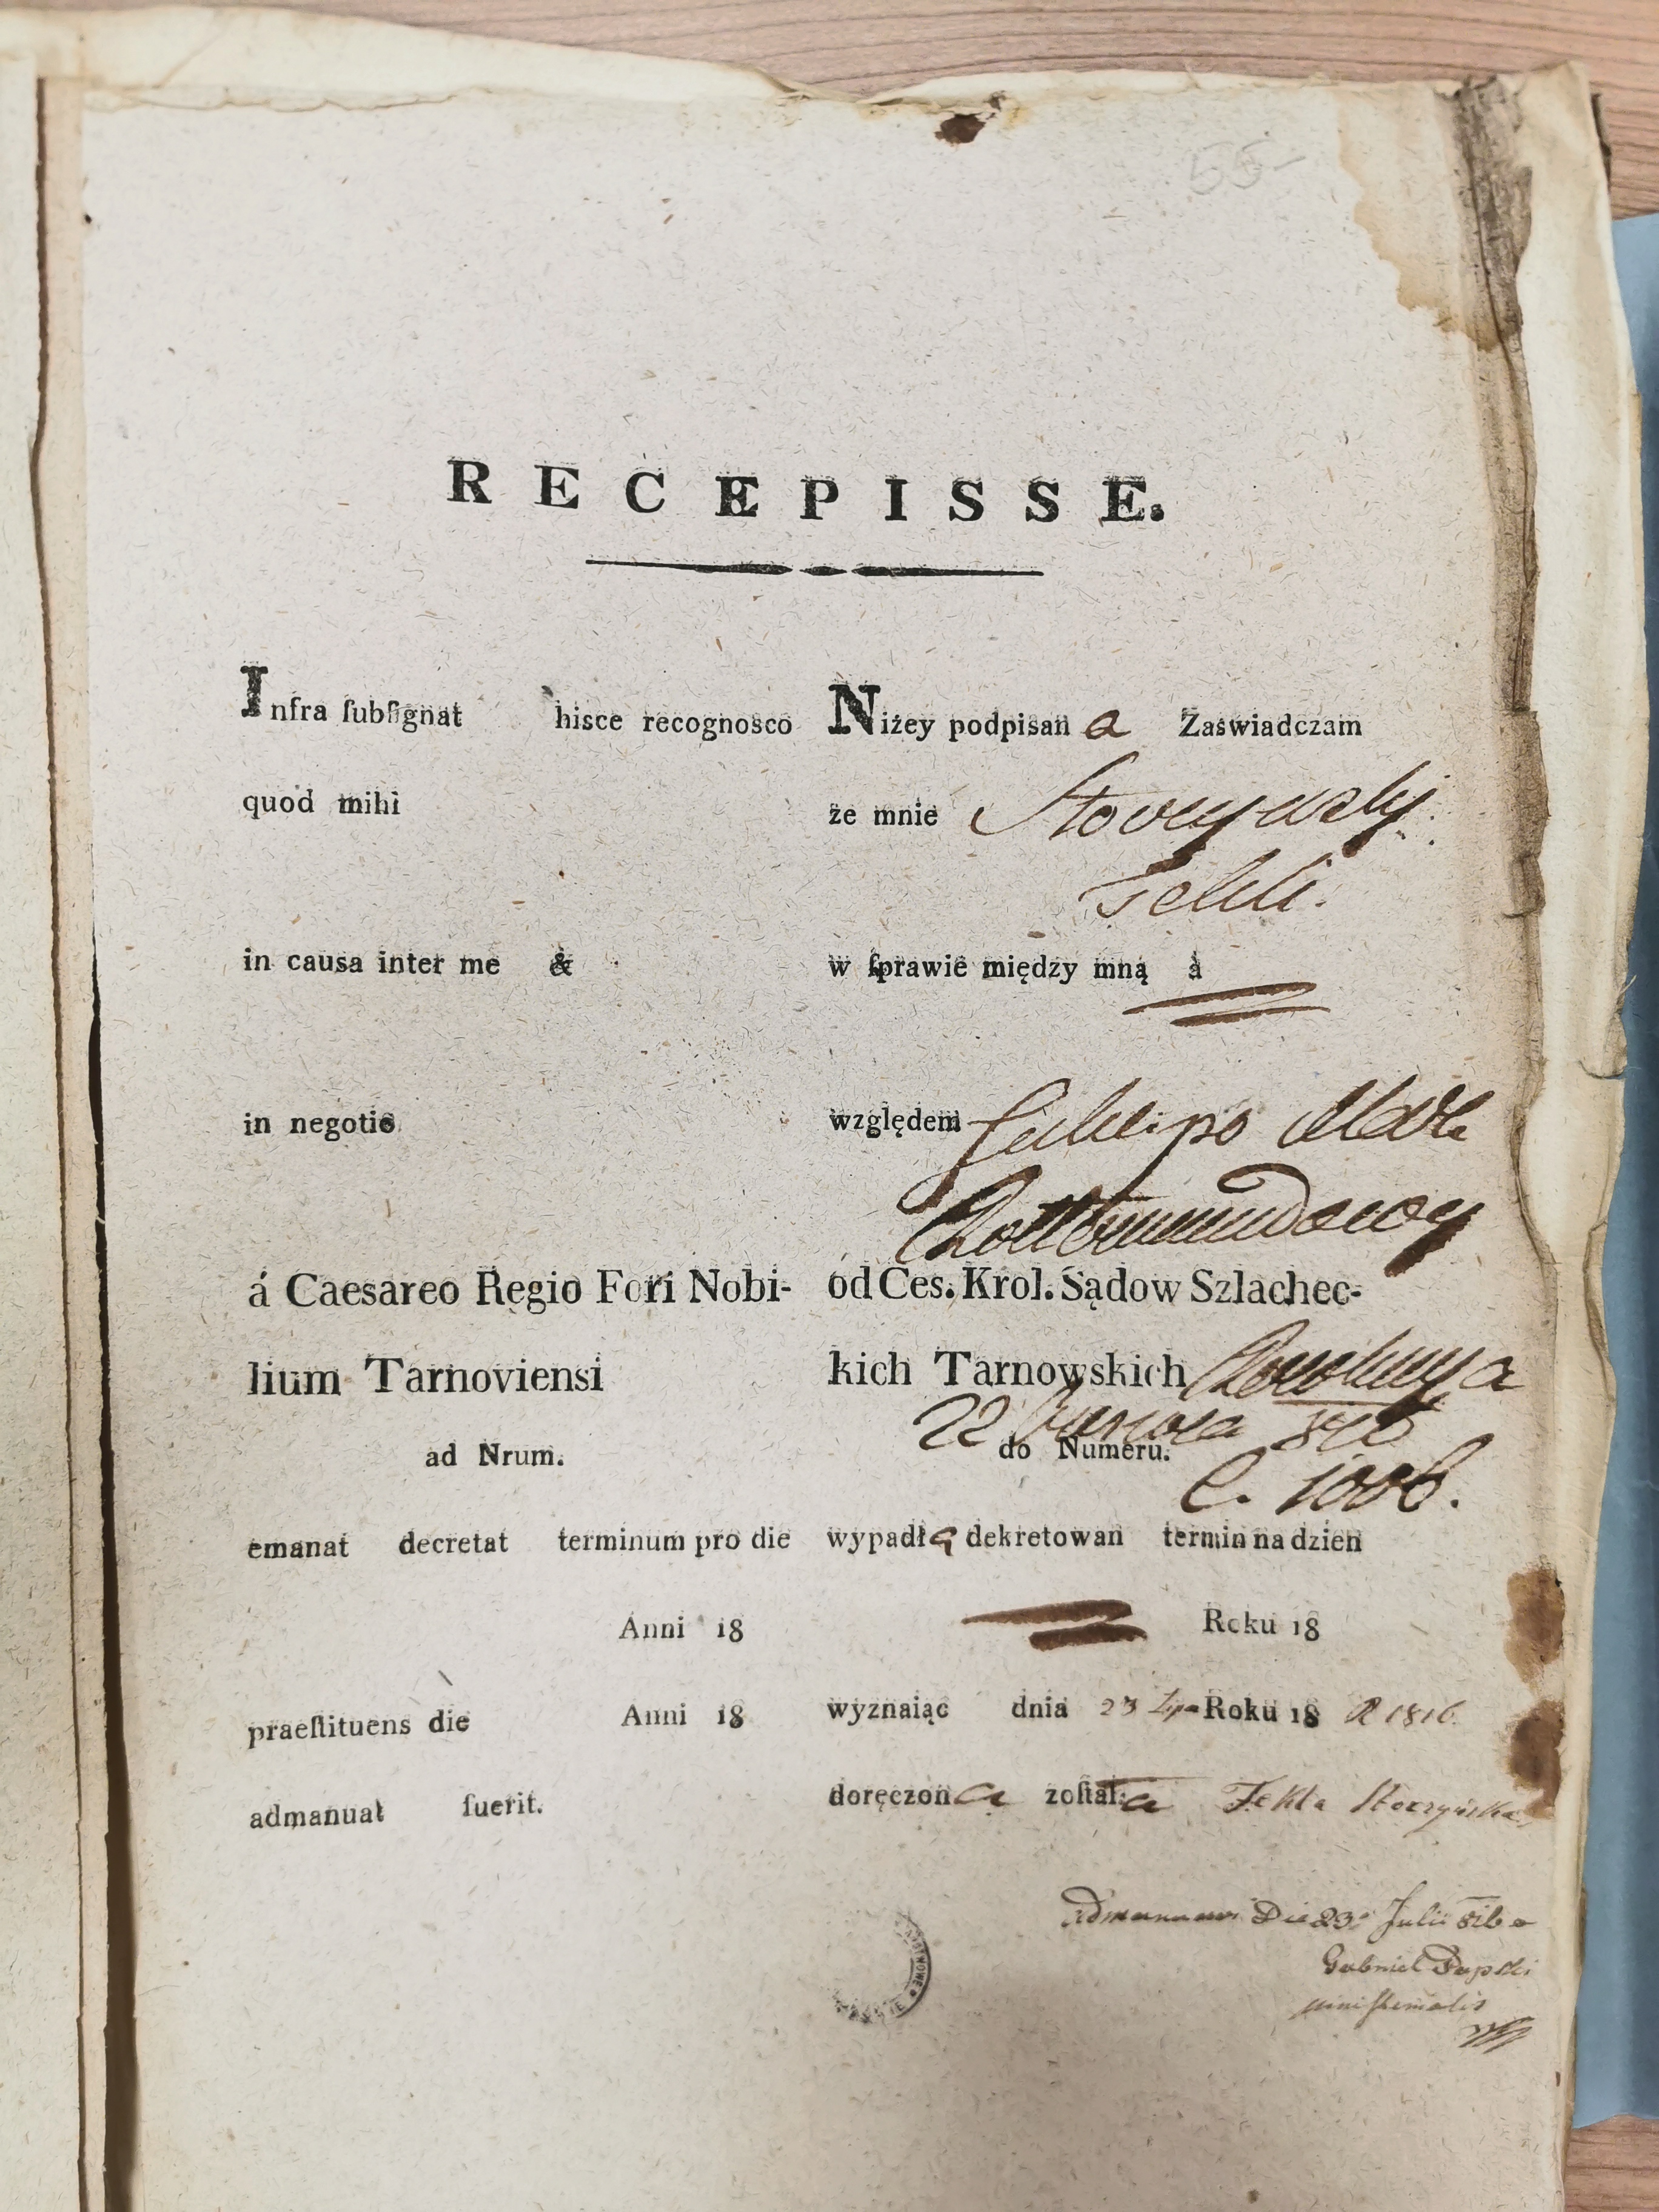 55
RECEPISSE.
Infra ſubſignat hisce recognosco
quod mihi
in causa inter me &
in negotio
á Caesareo Regio Fori Nobi-
lium Tarnoviensi
ad Nrum.
emanat decretat terminum pro die
Anni 18
praeſtituens die Anni 18
admanuat fuerit.
Niżey podpisan a Zaświadczam
że mnie
Tekli.
w ſprawie między mną á
względem po
od Ces. Krol. Sądow Szlachec-
kich Tarnowskich
22
do Numeru.
wypadła dekretowan termin na dzień
Roku 18
wyznaiąc dnia 23 Roku 18 R 1816
doręczona zoſtała Tekla Stoczyńska
Die 23 Julii 816
Gabriel
miniſterialis